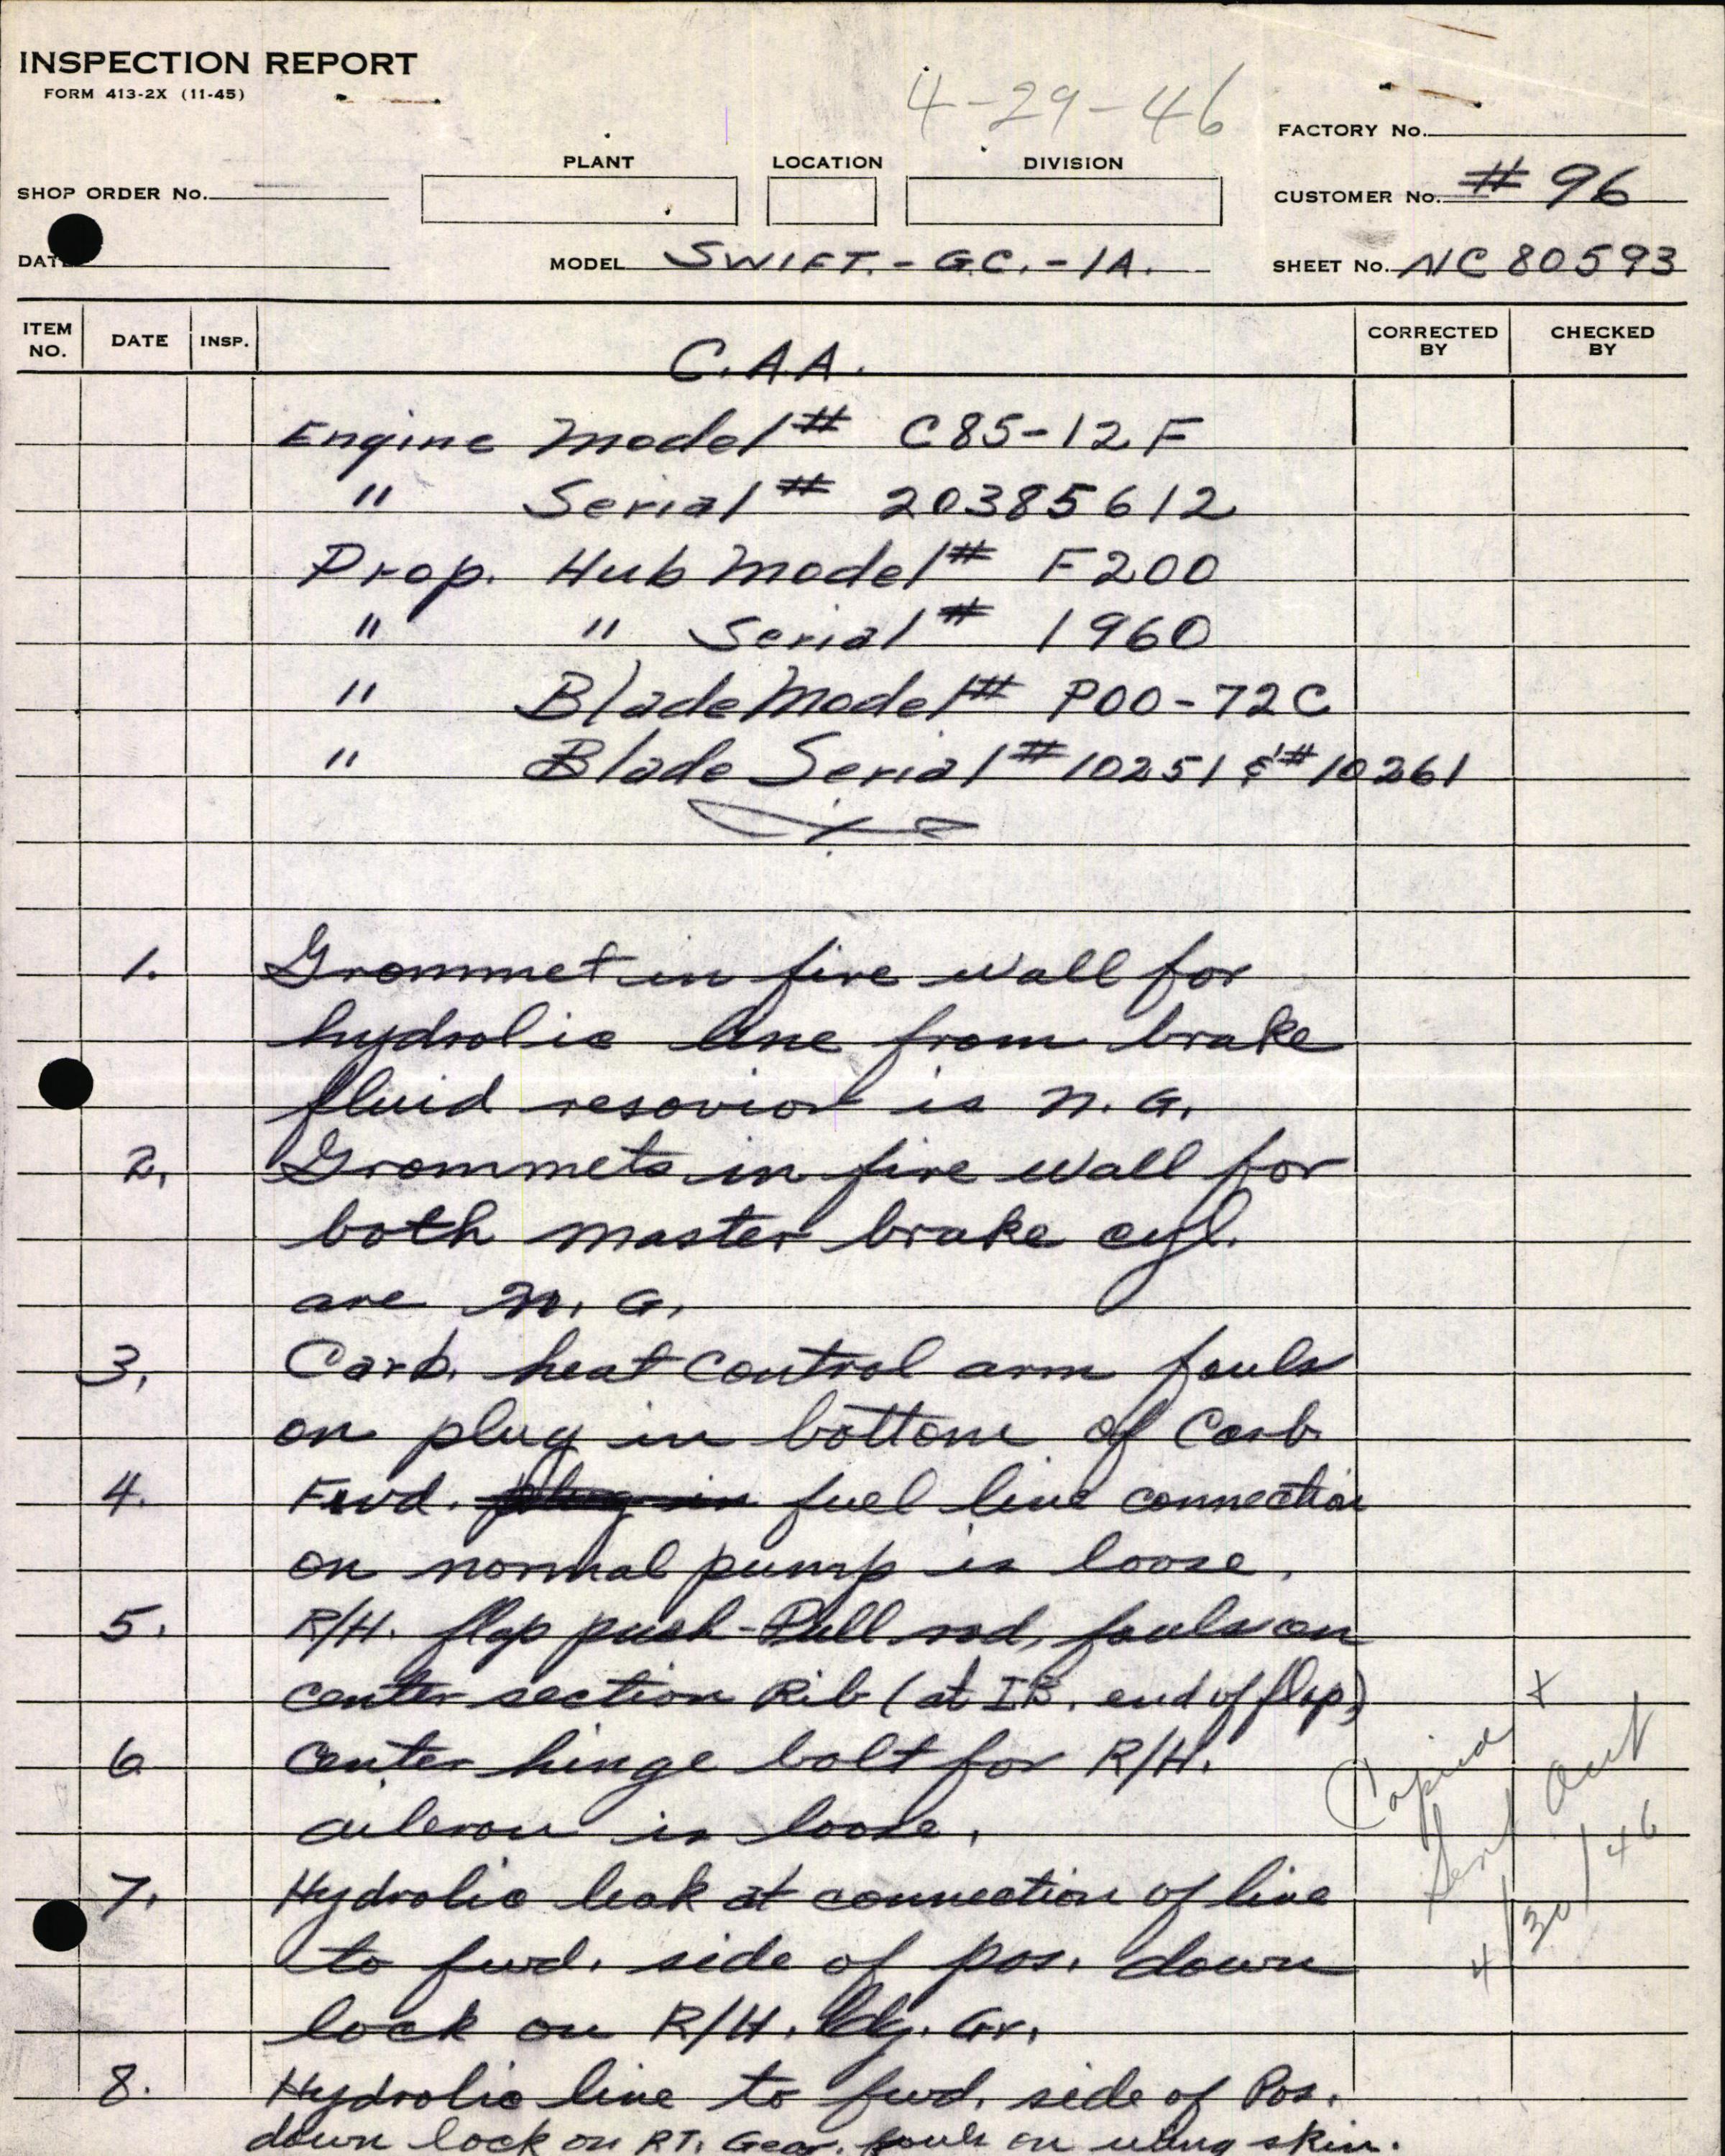 INSPECTION REPORT
FORM 413-2X (11-45)
4-29-46
FACTORY No.
PLANT LOCATION DIVISION
SHOP ORDER No.
CUSTOMER No. # 96
DATE
MODEL SWIFT.-G.C.-1A.
SHEET No. NC 80593
ITEM NO. DATE INSP. CORRECTED BY CHECKED BY
C.A.A.
Engine Model # C85-12F
" Serial # 20385612
Prop. Hub Model # F200
" " Serial # 1960
" Blade Model # P00-72C
" Blade Serial # 10251 & # 10261
1. Grommet in fire wall for
hydrolic line from brake
fluid resovior is N.G.
2. Grommets in fire wall for
both master brake cyl.
are N.G.
3. Carb. heat control arm fouls
on plug in bottom of Carb
4. Fwd. plug in fuel line connection
on normal pump is loose.
5. R/H. flap push-Pull rod, fouls on
center section Rib (at I.B. end of flap)
+
6 center hinge bolt for R/H.
aileron is loose.
Copied
Sent Out
4/30/46
7. Hydrolic leak at connection of line
to fwd. side of pos. down
lock on R/H. ldg. Gr.
8. Hydrolic line to fwd. side of Pos.
down lock on RT. Gear. fouls on wing skin.